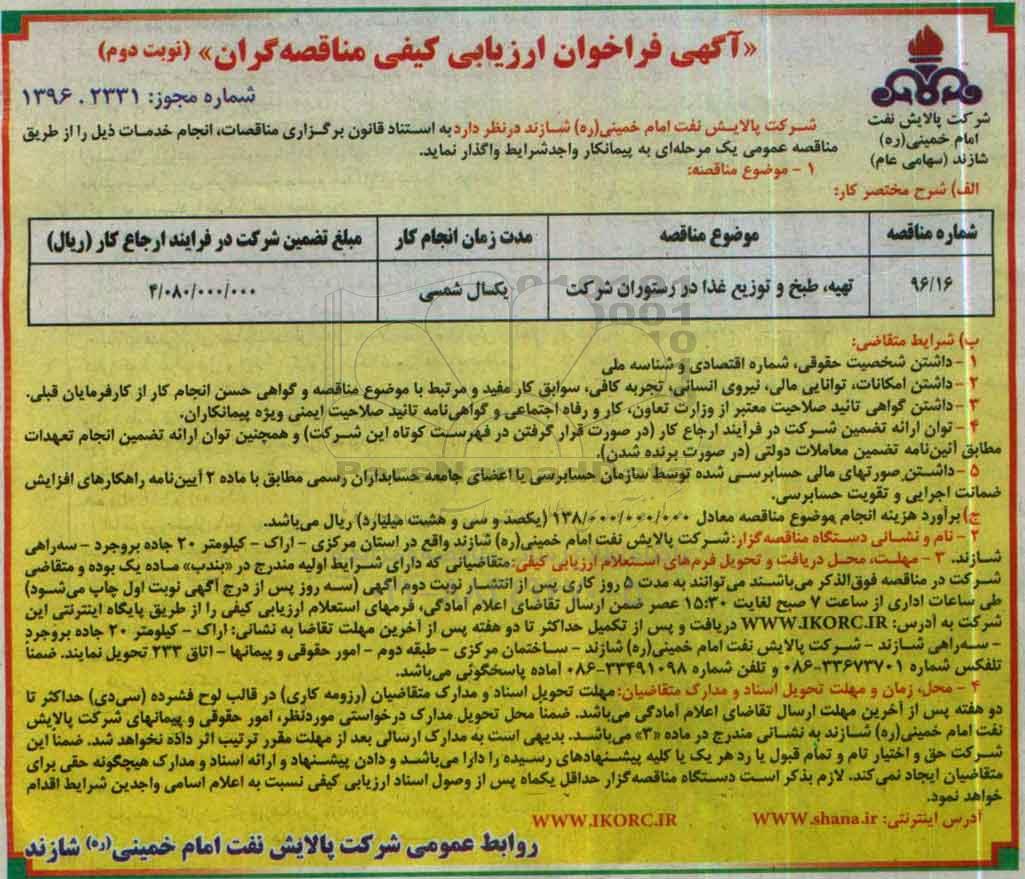 «آگهی فراخوان ارزیابی کیفی مناقصه‌گران» (نوبت دوم)
شماره مجوز: ۲۳۳۱ . ۱۳۹۶
شرکت پالایش نفت
امام خمینی(ره)
شازند (سهامی عام)
شرکت پالایش نفت امام خمینی(ره) شازند درنظر دارد به استناد قانون برگزاری مناقصات، انجام خدمات ذیل را از طریق
مناقصه عمومی یک مرحله‌ای به پیمانکار واجدشرایط واگذار نماید.
۱ - موضوع مناقصه:
الف) شرح مختصر کار:
شماره مناقصه موضوع مناقصه مدت زمان انجام کار مبلغ تضمین شرکت در فرایند ارجاع کار (ریال)
۹۶/۱۶ تهیه، طبخ و توزیع غذا در رستوران شرکت یکسال شمسی ۴/۰۸۰/۰۰۰/۰۰۰
ب) شرایط متقاضی:
۱ - داشتن شخصیت حقوقی، شماره اقتصادی و شناسه ملی
۲ - داشتن امکانات، توانایی مالی، نیروی انسانی، تجربه کافی، سوابق کار مفید و مرتبط با موضوع مناقصه و گواهی حسن انجام کار از کارفرمایان قبلی.
۳ - داشتن گواهی تائید صلاحیت معتبر از وزارت تعاون، کار و رفاه اجتماعی و گواهی‌نامه تائید صلاحیت ایمنی ویژه پیمانکاران.
۴ - توان ارائه تضمین شرکت در فرآیند ارجاع کار (در صورت قرار گرفتن در فهرست کوتاه این شرکت) و همچنین توان ارائه تضمین انجام تعهدات
مطابق آئین‌نامه تضمین معاملات دولتی (در صورت برنده شدن).
۵ - داشتن صورتهای مالی حسابرسی شده توسط سازمان حسابرسی یا اعضای جامعه حسابداران رسمی مطابق با ماده ۲ آیین‌نامه راهکارهای افزایش
ضمانت اجرایی و تقویت حسابرسی.
ج) برآورد هزینه انجام موضوع مناقصه معادل ۱۳۸/۰۰۰/۰۰۰/۰۰۰ (یکصد و سی و هشت میلیارد) ریال می‌باشد.
۲ - نام و نشانی دستگاه مناقصه‌گزار: شرکت پالایش نفت امام خمینی(ره) شازند واقع در استان مرکزی - اراک - کیلومتر ۲۰ جاده بروجرد - سه‌راهی
شازند. ۳ - مهلت، محل دریافت و تحویل فرم‌های استعلام ارزیابی کیفی: متقاضیانی که دارای شرایط اولیه مندرج در «بندب» ماده یک بوده و متقاضی
شرکت در مناقصه فوق‌الذکر می‌باشند می‌توانند به مدت ۵ روز کاری پس از انتشار نوبت دوم آگهی (سه روز پس از درج آگهی نوبت اول چاپ می‌شود)
طی ساعات اداری از ساعت ۷ صبح لغایت ۱۵:۳۰ عصر ضمن ارسال تقاضای اعلام آمادگی، فرمهای استعلام ارزیابی کیفی را از طریق پایگاه اینترنتی این
شرکت به آدرس: WWW.IKORC.IR دریافت و پس از تکمیل حداکثر تا دو هفته پس از آخرین مهلت تقاضا به نشانی: اراک - کیلومتر ۲۰ جاده بروجرد
- سه‌راهی شازند - شرکت پالایش نفت امام خمینی(ره) شازند - ساختمان مرکزی - طبقه دوم - امور حقوقی و پیمانها - اتاق ۲۳۳ تحویل نمایند. ضمنا
تلفکس شماره ۳۳۶۷۳۷۰۱-۰۸۶ و تلفن شماره ۳۳۴۹۱۰۹۸-۰۸۶ آماده پاسخگوئی می‌باشد.
۴ - محل، زمان و مهلت تحویل اسناد و مدارک متقاضیان: مهلت تحویل اسناد و مدارک متقاضیان (رزومه کاری) در قالب لوح فشرده (سی‌دی) حداکثر تا
دو هفته پس از آخرین مهلت ارسال تقاضای اعلام آمادگی می‌باشد. ضمنا محل تحویل مدارک درخواستی موردنظر، امور حقوقی و پیمانهای شرکت پالایش
نفت امام خمینی(ره) شازند به نشانی مندرج در ماده «۳» می‌باشد. بدیهی است به مدارک ارسالی بعد از مهلت مقرر ترتیب اثر داده نخواهد شد. ضمنا این
شرکت حق و اختیار تام و تمام قبول یا رد هر یک یا کلیه پیشنهادهای رسیده را دارا می‌باشد و دادن پیشنهاد و ارائه اسناد و مدارک هیچگونه حقی برای
متقاضیان ایجاد نمی‌کند. لازم بذکر است دستگاه مناقصه‌گزار حداقل یکماه پس از وصول اسناد ارزیابی کیفی نسبت به اعلام اسامی واجدین شرایط اقدام
خواهد نمود.
آدرس اینترنتی: WWW.shana.ir WWW.IKORC.IR
روابط عمومی شرکت پالایش نفت امام خمینی(ره) شازند